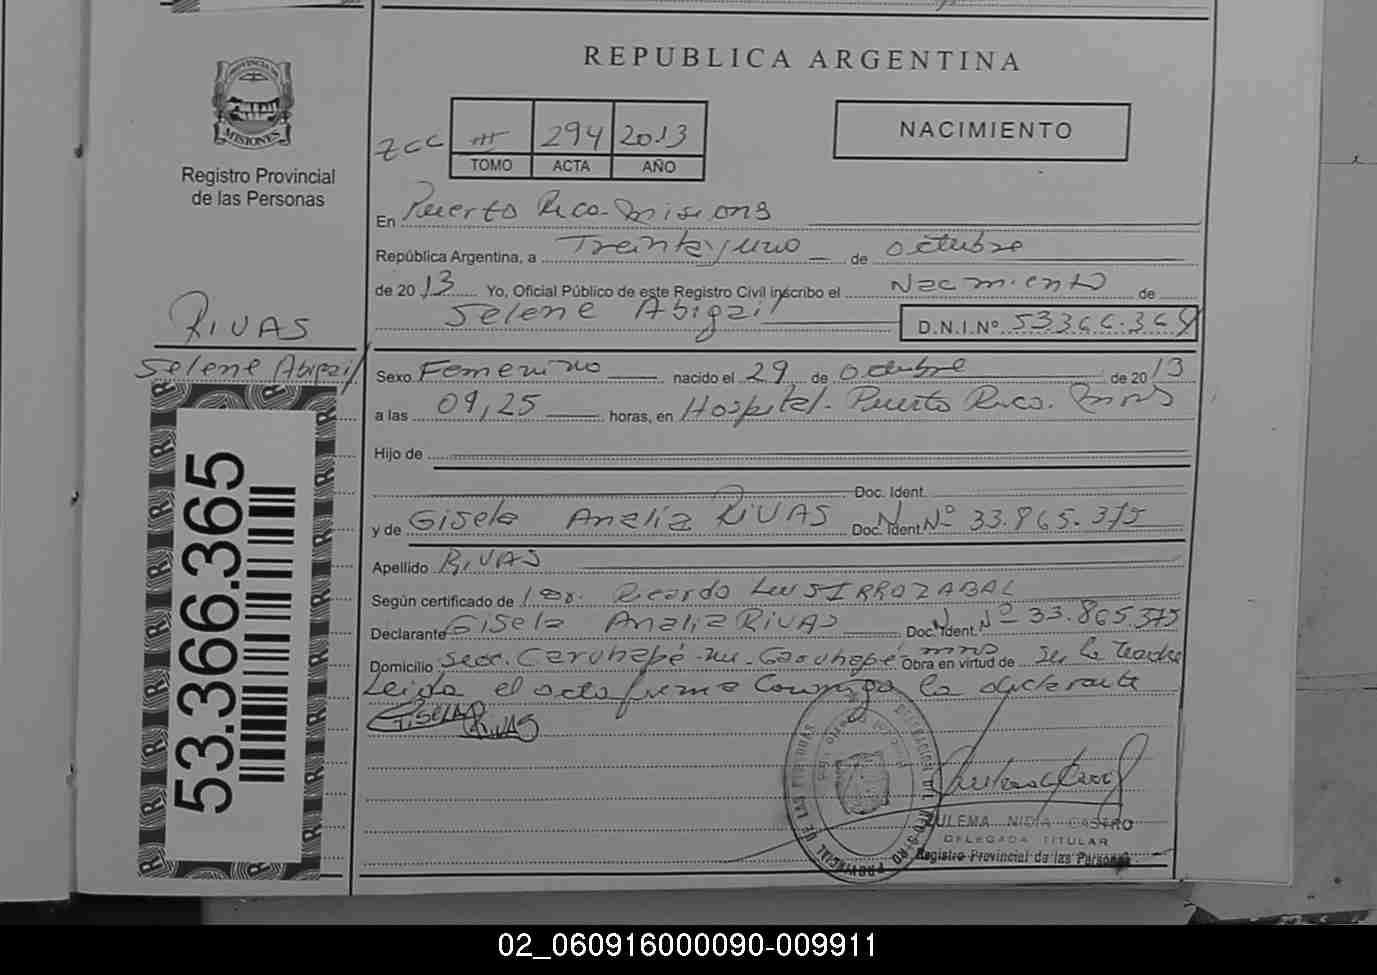 REPUBLICA ARGENTINA
PROVINCIA DE
MISIONES
Registro Provincial
de las Personas
III 294 2013
TOMO ACTA AÑO
NACIMIENTO
En Puerto Rico - Misiones
República Argentina, a Treinta y uno de octubre
de 2013 Yo, Oficial Público de este Registro Civil inscribo el Nacimiento de
Selene Abigail D.N.I.Nº 53366.365
RIVAS
Selene Abigail
Sexo Femenino nacido el 29 de Octubre de 2013
a las 09,25 horas, en Hospital - Puerto Rico. Mnes
Hijo de
Doc. Ident.
y de Gisela Analia RIVAS Doc. Ident. Nº 33.865.375
Apellido RIVAS
Según certificado de Ricardo Luis IRROZABAL
Declarante Gisela Analia RIVAS Doc. Ident. Nº 33.865.375
Domicilio secc. Caruhapé - Mi - Caruhapé mnes Obra en virtud de Ser la Madre
Leida el acta firma conmigo la declarante
GISELA RIVAS
53.366.365
ZULEMA NIDIA CASTRO
DELEGADA TITULAR
Registro Provincial de las Personas
02_060916000090-009911